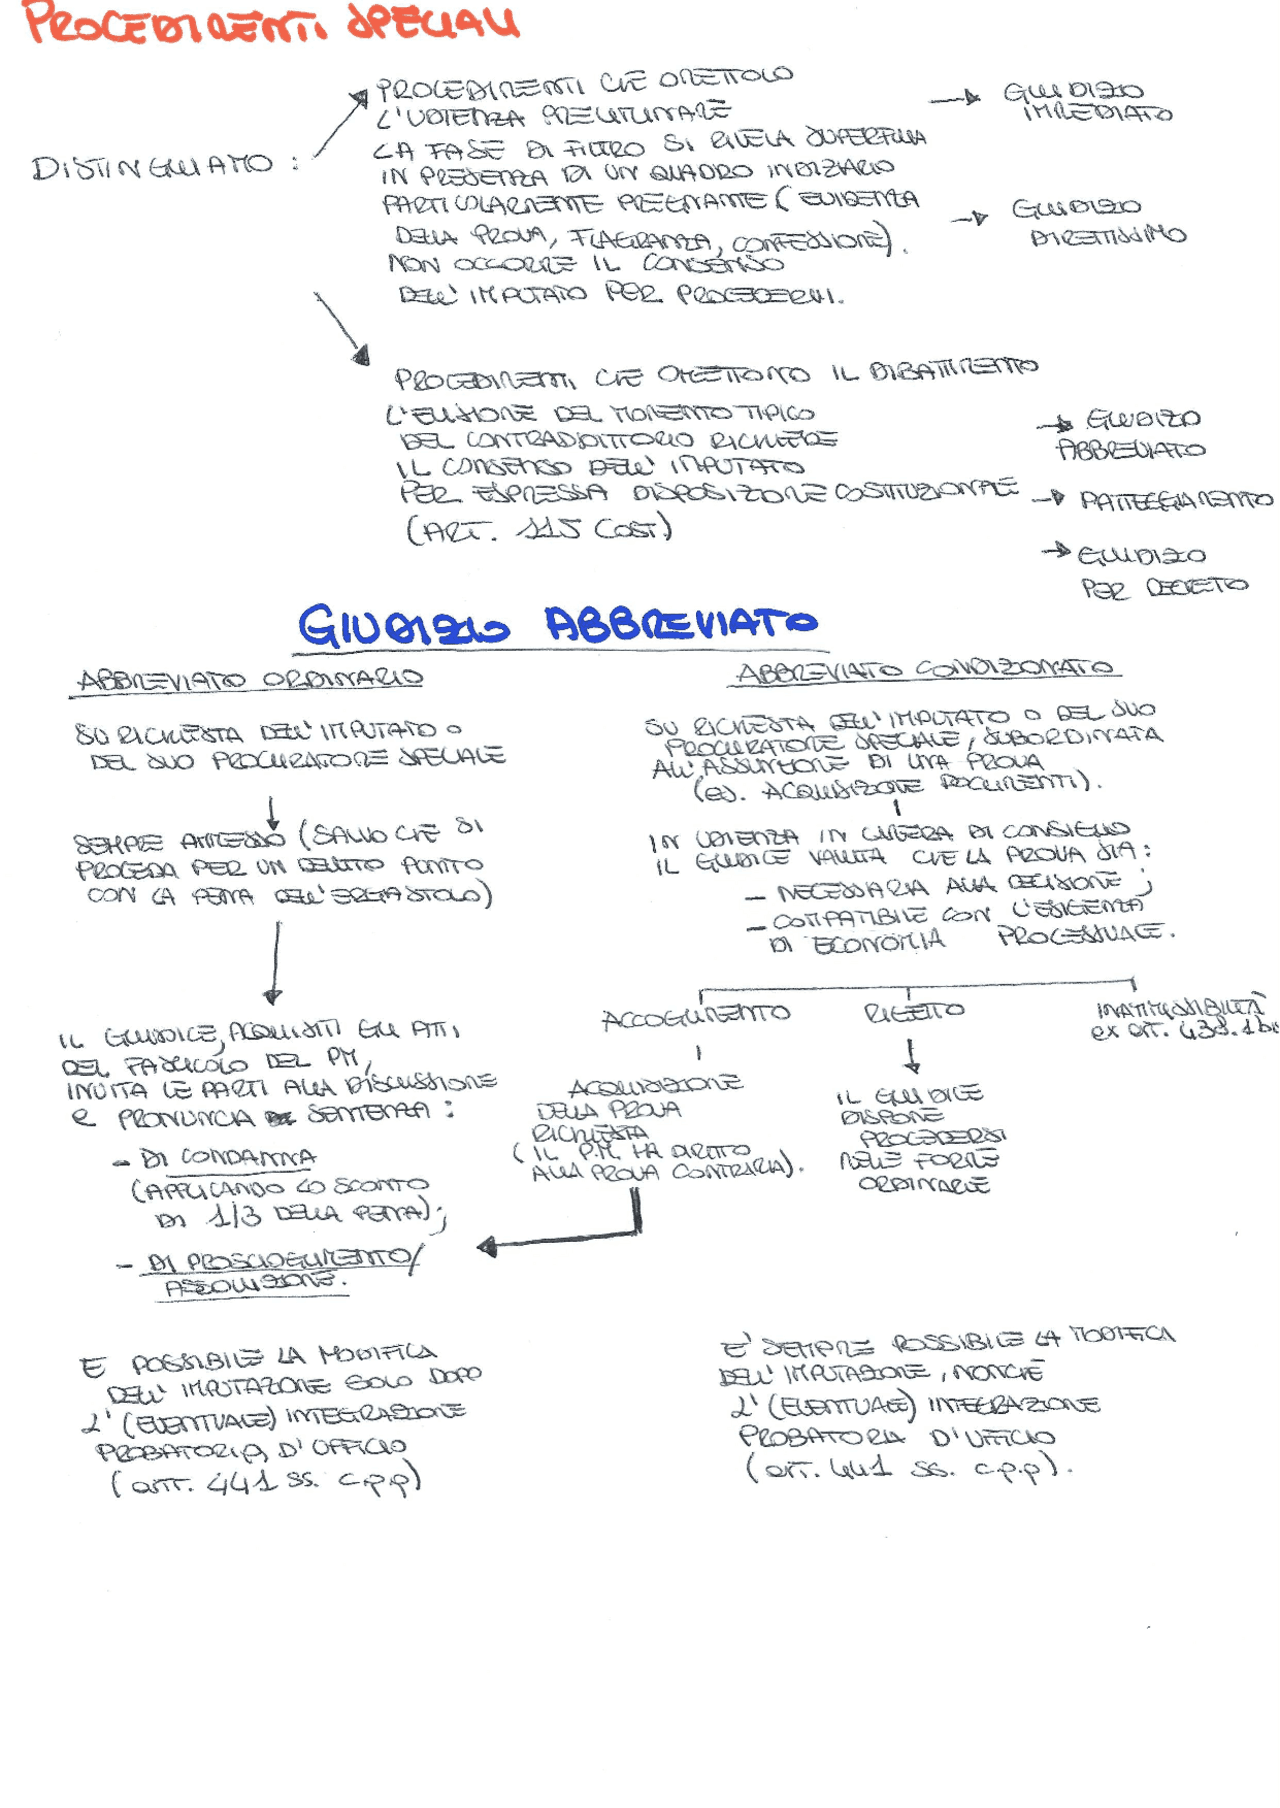 PROCEDIMENTI SPECIALI
DISTINGUIAMO :
PROCEDIMENTI CHE OMETTOLO
L'UDIENZA PRELIMINARE
LA FASE DI FILTRO SI RIVELA SUPERFLUA
IN PRESENZA DI UN QUADRO INDIZIARIO
PARTICOLARMENTE PREGNANTE (EVIDENZA
DELLA PROVA, FLAGRANZA, CONFESSIONE).
NON OCCORRE IL CONSENSO
DELL'IMPUTATO PER PROCEDERVI.
→ GIUDIZIO
IMMEDIATO
→ GIUDIZIO
DIRETTISSIMO
PROCEDIMENTI CHE OMETTONO IL DIBATTIMENTO
L'ELISIONE DEL MOMENTO TIPICO
DEL CONTRADDITTORIO RICHIEDE
IL CONSENSO DELL'IMPUTATO
PER ESPRESSA DISPOSIZIONE COSTITUZIONALE
(ART. 115 COST)
→ GIUDIZO
ABBREVIATO
→ PATTEGGIAMENTO
→ GIUDIZIO
PER DECRETO
GIUDIZIO ABBREVIATO
ABBREVIATO ORDINARIO
SU RICHIESTA DELL'IMPUTATO O
DEL SUO PROCURATORE SPECIALE
SEMPRE AMMESSO (SALVO CHE SI
PROCEDA PER UN DELITTO PUNITO
CON LA PENA DELL'ERGASTOLO)
IL GIUDICE, ACQUISITI GLI ATTI
DEL FASCICOLO DEL PM,
INVITA LE PARTI ALLA DISCUSSIONE
E PRONUNCIA SENTENZA :
- DI CONDANNA
(APPLICANDO LO SCONTO
DI 1/3 DELLA PENA);
- DI PROSCIOGLIMENTO/
ASSOLUZIONE.
E POSSIBILE LA MODIFICA
DELL'IMPUTAZIONE SOLO DOPO
L'(EVENTUALE) INTEGRAZIONE
PROBATORIA, D'UFFICIO
(art. 441 ss. c.p.p)
ABBREVIATO CONDIZIONATO
SU RICHIESTA DELL'IMPUTATO O DEL SUO
PROCURATORE SPECIALE, SUBORDINATA
ALL'ASSUNZIONE DI UNA PROVA
(es. ACQUISIZIONE DOCUMENTI).
IN UDIENZA IN CAMERA DI CONSIGLIO
IL GIUDICE VALUTA CHE LA PROVA SIA :
- NECESSARIA ALLA DECISIONE ;
- COMPATIBILE CON L'ESIGENZA
DI ECONOMIA PROCESSUALE.
ACCOGLIMENTO
RIGETTO
INAMMISSIBILITÀ
ex art. 438.1bis
ACQUISIZIONE
DELLA PROVA
RICHIESTA
(IL P.M. HA DIRITTO
ALLA PROVA CONTRARIA).
IL GIUDICE
DISPONE
PROCEDERSI
NELLE FORME
ORDINARIE
E' SEMPRE POSSIBILE LA MODIFICA
DELL'IMPUTAZIONE, NONCHÉ
L'(EVENTUALE) INTEGRAZIONE
PROBATORIA D'UFFICIO
(art. 441 ss. c.p.p).